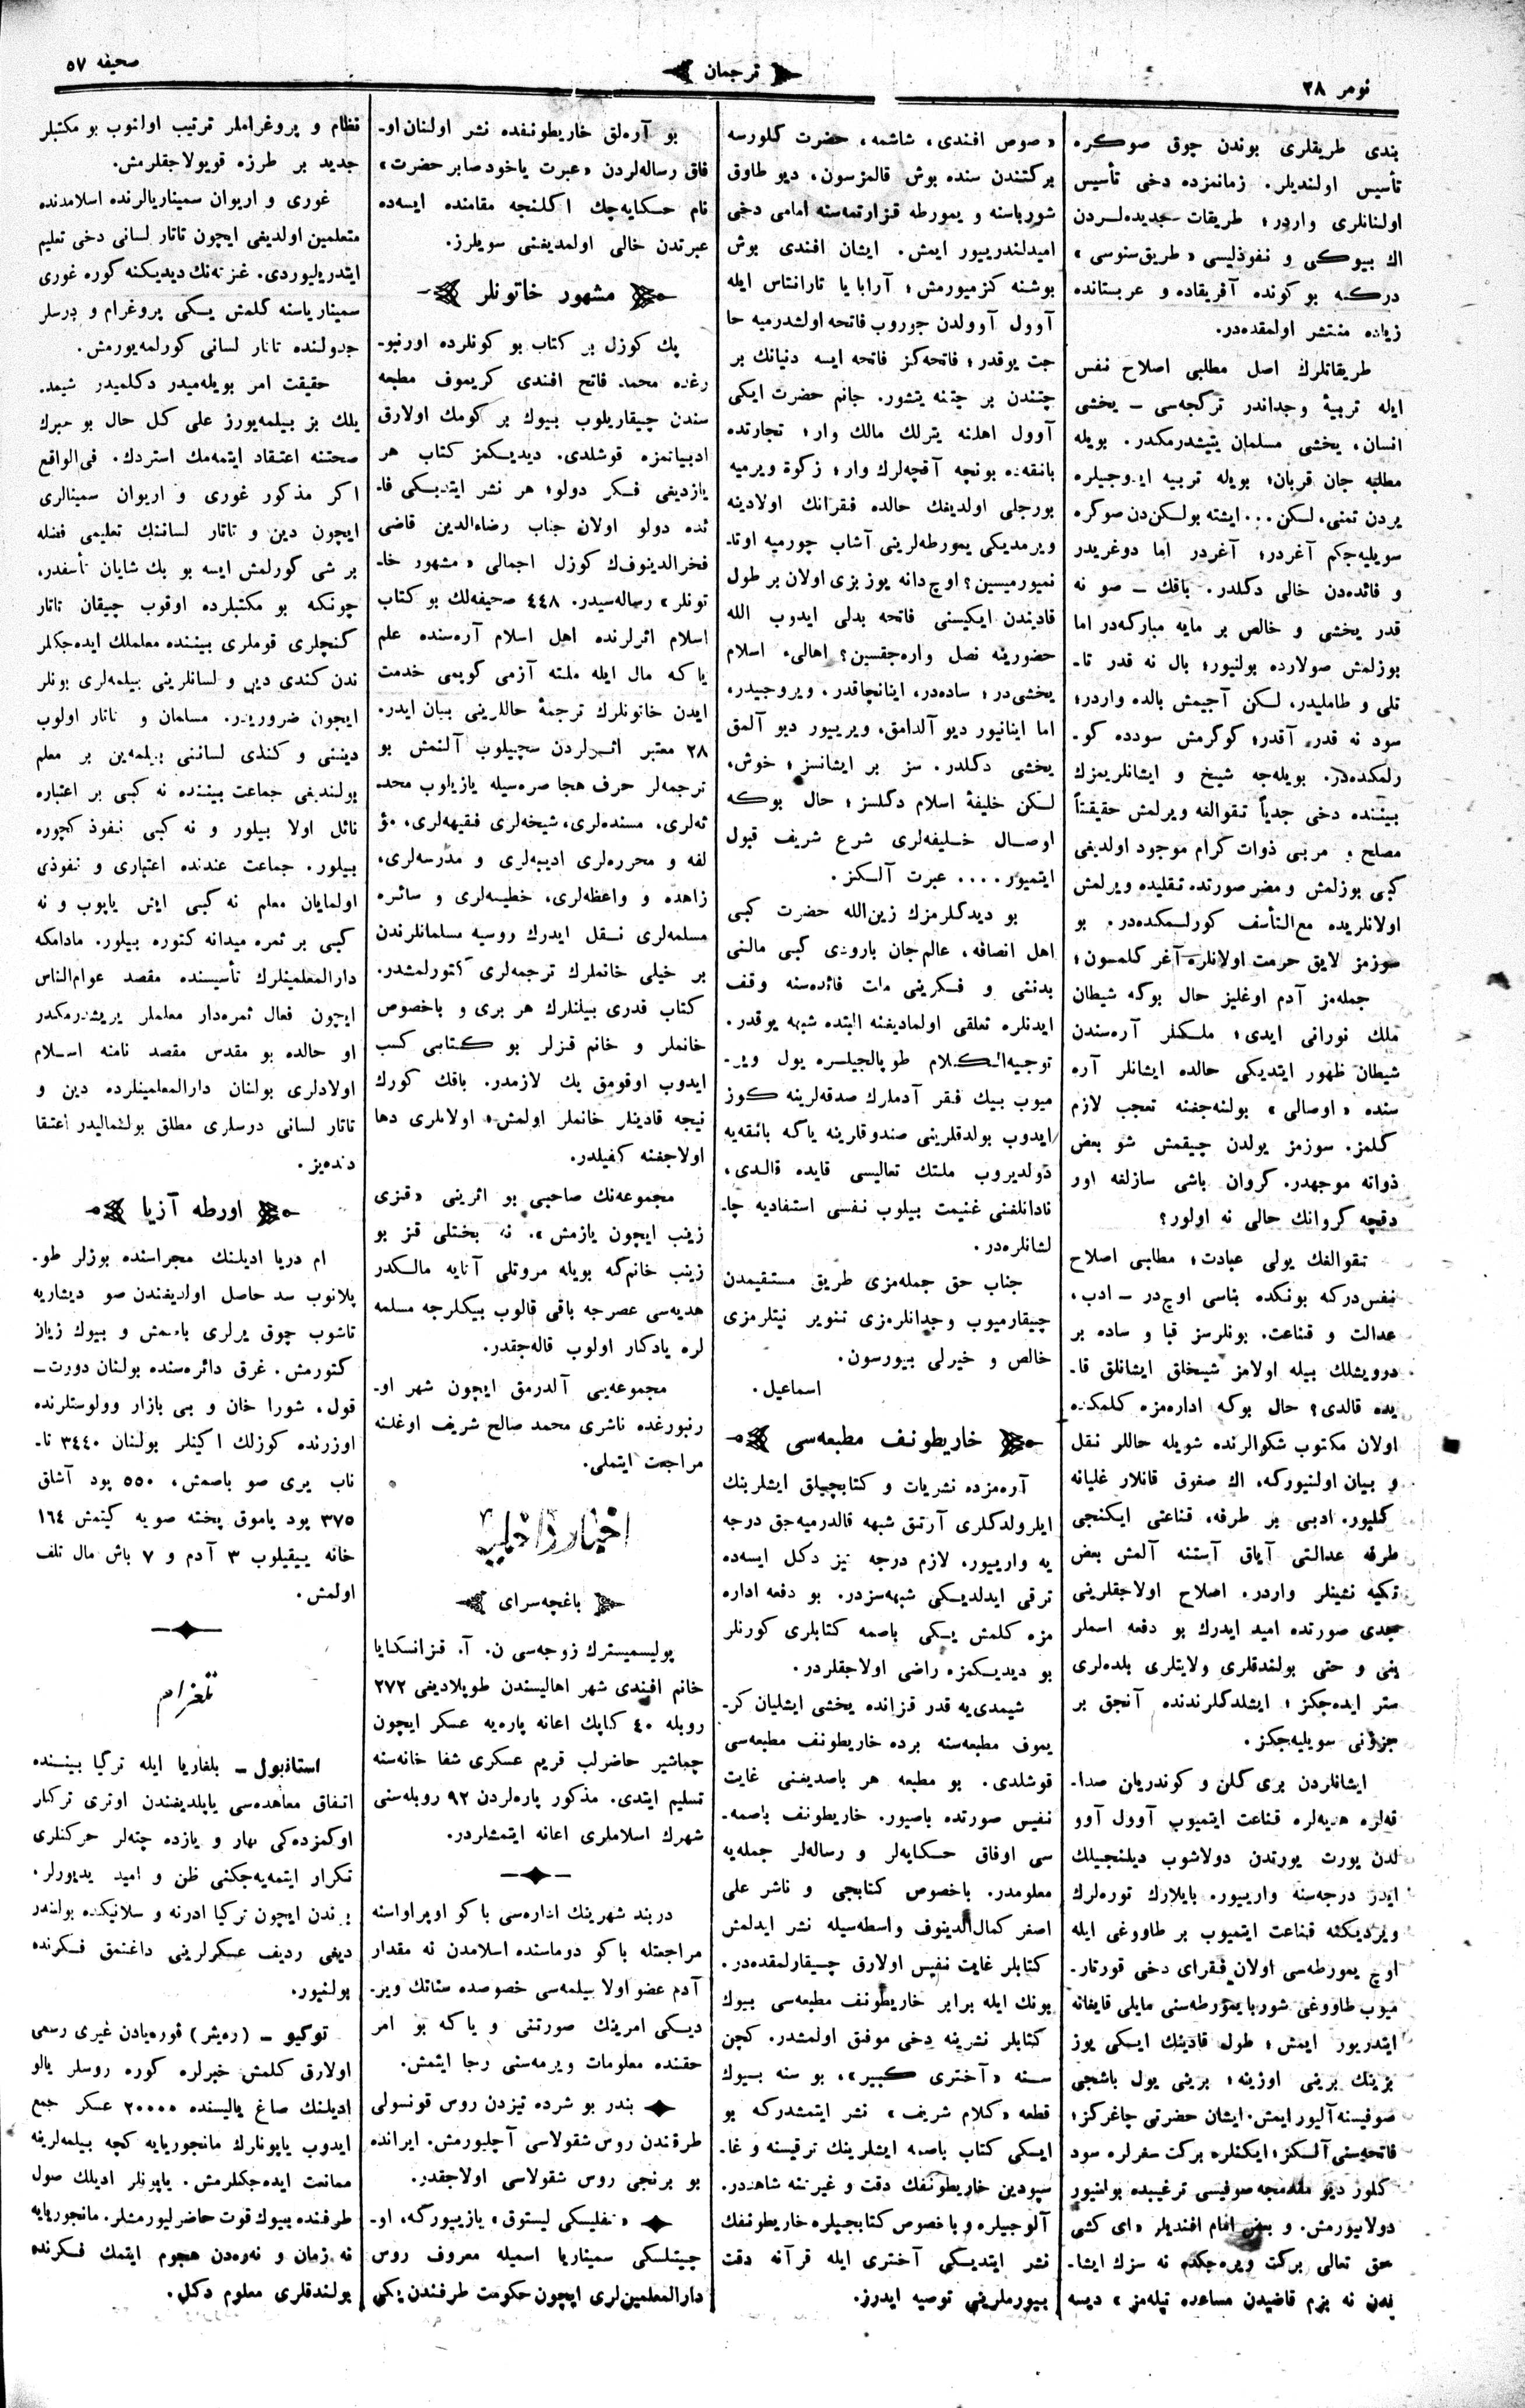 نومر ٢٨
ترجمان
صحيفه ٥٧
بندى طريقلرى بوندن چوق صوكره
تأسيس اولنديلر. زمانمزده دخى تأسيس
اولنانلرى واردر؛ طريقات جديده‌لردن
اك بيوكى و نفوذليسى «طريق سنوسى»
دركه بو كونده آفريقاده و عربستانده
زياده منتشر اولمقده‌در.
طريقاتلرك اصل مطلبى اصلاح نفس
ايله تربيۀ وجداندر تركجه‌سى ـ يخشى
انسان، يخشى مسلمان يتيشدرمكدر. بويله
مطلبه جان قربان؛ بويله تربيه ايدوجيلره
يردن تمنى، لسكن... ايشته بولسكن‌دن صوكره
سويليه‌جكم آغردر؛ آغردر اما دوغريدر
و فائده‌دن خالى دكلدر. باقك ـ صو نه
قدر يخشى و خالص بر مايه مباركه‌در اما
بوزلمش صولارده بولنيور؛ بال نه قدر تا‌ـ
تلى و طامليدر، لسكن آجيمش بالده واردر؛
سود نه قدر آقدر؛ كوكرمش سودده كو‌ـ
رلمكده‌در. بويله‌جه شيخ و ايشانلريمزك
بيننده دخى جدياً تقوالغه ويرلمش حقيقتاً
مصلح و مربى ذوات كرام موجود اولديغى
كبى بوزلمش و مضر صورتده تقليده ويرلمش
اولانلريده مع‌التأسف كورلمكده‌در. بو
سوزمز لايق حرمت اولانلره آغر كلمسون؛
جمله‌مز آدم اوغليز حال بوكه شيطان
ملك نورانى ايدى؛ ملكلر آره‌سندن
شيطان ظهور ايتديكى حالده ايشانلر آره
سنده «اوصالى» بولنه‌جغنه تعجب لازم
كلمز. سوزمز يولدن چيقمش شو بعض
ذواته موجهدر. كروان باشى سازلغه اور
دقچه كروانك حالى نه اولور؟
تقوالغك يولى عبادت؛ مطالبى اصلاح
نفس‌دركه بونكده بناسى اوچ‌در ـ ادب،
عدالت و قناعت. بونلرسز قبا و ساده بر
درويشلك بيله اولامز شيخلق ايشانلق قا‌ـ
يده قالدى؟ حال بوكه اداره‌مزه كلمكده
اولان مكتوب شكوالرنده شويله حاللر نقل
و بيان اولنيوركه، اك صغوق قانلار غليانه
كليور. ادبى بر طرفه، قناعتى ايكنجى
طرفه عدالتى آياق آستنه آلمش بعض
تكيه نشينلر واردر. اصلاح اولاجقلرينى
جدى صورتده اميد ايدرك بو دفعه اسملر
ينى و حتى بولندقلرى ولايتلرى بلده‌لرى
ستر ايده‌جكز؛ ايشلدكلرندنده آنجق بر
جزؤنى سويليه‌جكز.
ايشانلردن برى كلن و كوندريان صدا‌ـ
قه‌لره هديه‌لره قناعت ايتميوب آوول آوو
لدن يورت يورتدن دولاشوب ديلنجيلك
ايدر درجه‌سنه وارييور. بايلارك توره‌لرك
ويرديكنه قناعت ايتميوب بر طاووغى ايله
اوچ يمورطه‌سى اولان فقراى دخى قورتار‌ـ
ميوب طاووغى شوربا يمورطه‌سنى مايلى قايغانه
ايتدريور ايمش؛ طول قادينك ايسكى يوز
بزينك برينى اوزينه؛ برينى يول باشجى
صوفيسنه آليور ايمش. ايشان حضرتى چاغركز؛
فاتحه‌سنى آلسكز؛ ايكنلره بركت سفرلره سود
كلور ديو مقدمجه صوفيسى ترغيبده بولنيور
دولانيورمش. و بعض امام افنديلر «اى كشى
حق تعالى بركت ويره‌جكده نه سزك ايشا‌ـ
ندن نه بزم قاضيدن مساعده تيله‌مز» ديسه
«صوص افندى، شاشمه، حضرت كلورسه
بركتندن سنده بوش قالمزسون، ديو طاوق
شورباسنه و يمورطه قزارتمه‌سنه امامى دخى
اميدلندرييور ايمش. ايشان افندى بوش
بوشنه كزميورمش؛ آرابا يا تارانتاس ايله
آوول آوولدن جوروب فاتحه اولشدرميه حا
جت يوقدر؛ فاتحه‌كز فاتحه ايسه دنيانك بر
چتندن بر چتنه يتشور. جانم حضرت ايكى
آوول اهلنه يترلك مالك وار؛ تجارتده
بانقه‌ده بونچه آقچه‌لرك وار؛ زكوة ويرميه
بورجلى اولديغك حالده فقرانك اولادينه
ويرمديكى يمورطه‌لرينى آشاب جورميه اوتا‌ـ
نميورميسين؟ اوچ دانه يوز بزى اولان بر طول
قاديندن ايكيسنى فاتحه بدلى ايدوب الله
حضورينه نصل واره‌جقسين؟ اهالىء اسلام
يخشى‌در؛ ساده‌در، اينانچاقدر. ويروجيدر،
اما اينانيور ديو آلدامق، ويرييور ديو آلمق
يخشى دكلدر. سز بر ايشانسز؛ خوش،
لسكن خليفۀ اسلام دكلسز؛ حال بوكه
اوصال خليفه‌لرى شرع شريف قبول
ايتميور.... عبرت آلسكز.
بو ديدكلرمزك زين‌الله حضرت كبى
اهل انصافه، عالم‌جان بارودى كبى مالنى
بدننى و فكرينى ملت فائده‌سنه وقف
ايدنلره تعلقى اولماديغنه البته شبهه يوقدر.
توجيه‌الكلام طوپالجيلره يول وير‌ـ
ميوب بيك فقر آدملرك صدقه‌لرينه كوز
ايدوب بولدقلرينى صندوقلرينه ياكه بانقه‌يه
دولديروب ملتك تعاليسى قايده قالدى،
نادانلغنى غنيمت بيلوب نفسى استفاديه چا‌ـ
لشانلره‌در.
جناب حق جمله‌مزى طريق مستقيمدن
چيقارميوب وجدانلرمزى تنوير نيتلرمزى
خالص و خيرلى بيورسون.
اسماعيل.
خاريطونف مطبعه‌سى
آره‌مزده نشريات و كتابچيلق ايشلرينك
ايلرولدكلرى آرتق شبهه قالدرميه‌جق درجه
يه وارييور. لازم درجه نيز دكل ايسه‌ده
ترقى ايدلديكى شبهه‌سزدر. بو دفعه اداره
مزه كلمش يكى باصمه كتابلرى كورنلر
بو ديديكمزه راضى اولاجقلردر.
شيمدى‌يه قدر قزانده يخشى ايشليان كر‌ـ
يموف مطبعه‌سنه برده خاريطونف مطبعه‌سى
قوشلدى. بو مطبعه هر باصديغنى غايت
نفيس صورتده باصيور. خاريطونف باصمه‌ـ
سى اوفاق حكايه‌لر و رساله‌لر جمله‌يه
معلومدر. باخصوص كتابجى و ناشر على
اصغر كمال‌الدينوف واسطه‌سيله نشر ايدلمش
كتابلر غايت نفيس اولارق چيقارلمقده‌در.
بونك ايله برابر خاريطونف مطبعه‌سى بيوك
كتابلر نشرينه دخى موفق اولمشدر. كچن
سنه «آخترى كبير»، بو سنه بيوك
قطعه «كلام شريف» نشر ايتمشدركه بو
ايسكى كتاب باصمه ايشلرينك ترقيسنه و غا‌ـ
سپودين خاريطونفك دقت و غيرتنه شاهددر.
آلوجيلره و باخصوص كتابجيلره خاريطونفك
نشر ايتديكى آخترى ايله قرآنه دقت
بيورملرينى توصيه ايدرز.
بو آره‌لق خاريطونفده نشر اولنان او‌ـ
فاق رساله‌لردن «عبرت ياخود صابر حضرت»
نام حكايه‌چك اكلنجه مقامنده ايسه‌ده
عبرتدن خالى اولمديغنى سويلرز.
مشهور خاتونلر
پك كوزل بر كتاب بو كونلرده اورنبو‌ـ
رغده محمد فاتح افندى كريموف مطبعه
سندن چيقاريلوب بيوك بر كومك اولارق
ادبياتمزه قوشلدى. ديديكمز كتاب هر
يازديغى فكر دولو؛ هر نشر ايتديكى فا‌ـ
ئده دولو اولان جناب رضاءالدين قاضى
فخرالدينوف‌ك كوزل اجمالى «مشهور خا‌ـ
تونلر» رساله‌سيدر. ٤٤٨ صحيفه‌لك بو كتاب
اسلام اثرلرنده اهل اسلام آره‌سنده علم
ياكه مال ايله ملته آزمى كوپمى خدمت
ايدن خاتونلرك ترجمۀ حاللرينى بيان ايدر.
٢٨ معتبر اثرلردن سچيلوب آلنمش بو
ترجمه‌لر حرف هجا صره‌سيله يازيلوب محد
ثه‌لرى، مسنده‌لرى، شيخه‌لرى فقيهه‌لرى، مؤ
لفه و محرره‌لرى اديبه‌لرى و مدرسه‌لرى،
زاهده و واعظه‌لرى، خطيبه‌لرى و سائره
مسلمه‌لرى نقل ايدرك روسيه مسلمانلرندن
بر خيلى خانملرك ترجمه‌لرى كتورلمشدر.
كتاب قدرى بيلنلرك هر برى و باخصوص
خانملر و خانم قزلر بو كتابى كسب
ايدوب اوقومق پك لازمدر. باقك كورك
نيچه قادينلر خانملر اولمش؛ اولانلرى دها
اولاجغنه كفيلدر.
مجموعه‌نك صاحبى بو اثرينى «قزى
زينب ايچون يازمش». نه بختلى قز بو
زينب خانم‌كه بويله مروتلى آنايه مالكدر
هديه‌سى عصرجه باقى قالوب بيكلرجه مسلمه
لره يادكار اولوب قاله‌جقدر.
مجموعه‌يى آلدرمق ايچون شهر او‌ـ
رنبورغده ناشرى محمد صالح شريف اوغلنه
مراجعت ايتملى.
اخبار داخليه
باغچه‌سراى
پوليسميسترك زوجه‌سى ن. آ. قزانسكايا
خانم افندى شهر اهاليسندن طوپلاديغى ٢٧٢
روبله ٤٠ كاپك اعانه پاره‌يه عسكر ايچون
چماشير حاضرلب قريم عسكرى شفا خانه‌سنه
تسليم ايتدى. مذكور پاره‌لردن ٩٢ روبله‌سنى
شهرك اسلاملرى اعانه ايتمشلردر.
دربند شهرينك اداره‌سى باكو اوپراواسنه
مراجعتله باكو دوماسنده اسلامدن نه مقدار
آدم عضو اولا بيلمه‌سى خصوصده سناتك وير‌ـ
ديكى امرينك صورتنى و ياكه بو امر
حقنده معلومات ويرمه‌سنى رجا ايتمش.
بندر بو شرده تيزدن روس قونسولى
طرفندن روس شقولاسى آچليورمش. ايرانده
بو برنجى روس شقولاسى اولاجقدر.
«تفليسكى ليستوق» يازييوركه، او‌ـ
چيتلسكى سميناريا اسميله معروف روس
دارالمعلمين‌لرى ايچون حكومت طرفندن يكى
نظام و پروغراملر ترتيب اولنوب بو مكتبلر
جديد بر طرزه قويولاجقلرمش.
غورى و اريوان سميناريالرنده اسلامدنده
متعلمين اولديغى ايچون تاتار لسانى دخى تعليم
ايتدريليوردى. غزته‌نك ديديكنه كوره غورى
سميناريا‌سنه كلمش يكى پروغرام و درسلر
جدولنده تاتار لسانى كورلمه‌يورمش.
حقيقت امر بويله‌ميدر دكلميدر شيمد‌ـ
يلك بز بيلمه‌يورز على كل حال بو خبرك
صحتنه اعتقاد ايتمه‌مك استردك. فى‌الواقع
اكر مذكور غورى و اريوان سمينالرى
ايچون دين و تاتار لساننك تعليمى فضله
بر شى كورلمش ايسه بو پك شايان تأسفدر،
چونكه بو مكتبلرده اوقوب چيقان تاتار
كنجلرى قوملرى بيننده معلملك ايده‌جكلر
ندن كندى دين و لسانلرينى بيلمه‌لرى بونلر
ايچون ضروريدر. مسلمان و تاتار اولوب
ديننى و كندى لساننى بيلمه‌ين بر معلم
بولنديغى جماعت بيننده نه كبى بر اعتباره
نائل اولا بيلور و نه كبى نفوذ كچوره
بيلور. جماعت عندنده اعتبارى و نفوذى
اولمايان معلم نه كبى ايش ياپوب و نه
كبى بر ثمره ميدانه كتوره بيلور. مادامكه
دارالمعلمينلرك تأسيسنده مقصد عوام‌الناس
ايچون فعال ثمره‌دار معلملر يتيشدرمكدر
او حالده بو مقدس مقصد نامنه اسلام
اولادلرى بولنان دارالمعلمينلرده دين و
تاتار لسانى درسلرى مطلق بولنماليدر اعتقا
دنده‌يز.
اورطه آزيا
ام دريا اديلنك مجراسنده بوزلر طو‌ـ
پلانوب سد حاصل اولديغندن صو ديشاريه
تاشوب چوق يرلرى باصمش و بيوك زيان
كتورمش. غرق دائره‌سنده بولنان دورت‌ـ
قول، شورا خان و بى بازار وولوستلرنده
اوزرنده كوزلك اكينلر بولنان ٣٤٤٠ تا‌ـ
ناب يرى صو باصمش، ٥٥٠ پود آشلق
٣٧٥ پود پاموق پخته صويه كيتمش ١٦٤
خانه ييقيلوب ٣ آدم و ٧ باش مال تلف
اولمش.
تلغرام
استانبول ـ بلغاريا ايله تركيا بيننده
اتفاق معاهده‌سى ياپلديغندن اوترى تركلر
اوكمزده‌كى بهار و يازده چته‌لر حركتلرى
تكرار ايتمه‌يه‌جكنى ظن و اميد يديورلر.
بوندن ايچون تركيا ادرنه و سلانيكده بولندر
ديغى رديف عسكرلرينى داغتمق فكرنده
بولنيور.
توكيو ـ (ره‌يتر) قوره‌يادن غيرى رسمى
اولارق كلمش خبرلره كوره روسلر يالو
اديلنك صاغ ياليسنده ٢٠٠٠٠ عسكر جمع
ايدوب ياپونلرك مانجوريايه كچه بيلمه‌لرينه
ممانعت ايده‌جكلرمش. ياپونلر اديلك صول
طرفنده بيوك قوت حاضرليورمشلر. مانجوريايه
نه زمان و نه‌ره‌دن هجوم ايتمك فكرنده
بولندقلرى معلوم دكل.